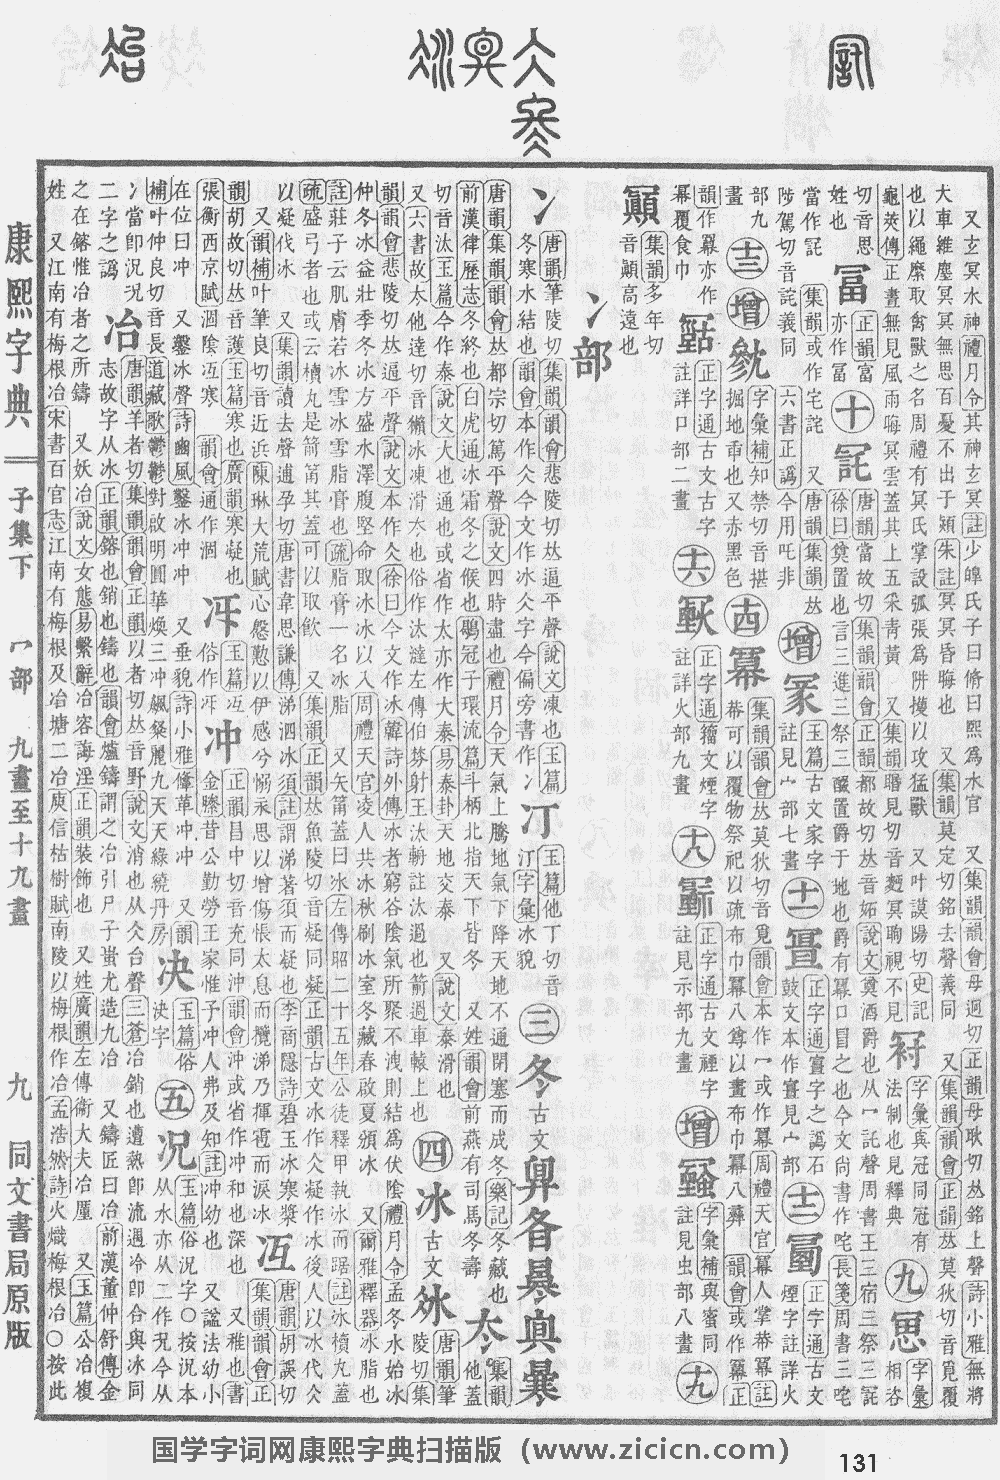 又玄冥水神禮月令其神玄冥註少皥氏子曰脩曰熙為水官 又集韻韻會母迥切正韻母耿切𠀤銘上聲詩小雅無將
大車維塵冥冥無思百憂不出于熲朱註冥冥昏晦也 又集韻莫定切銘去聲義同 又集韻韻會正韻𠀤莫狄切音覓覆
也以繩縻取禽獸之名周禮有冥氏掌設弧張為阱擭以攻猛獸 又叶謨陽切史記
龜莢傳正晝無見風雨晦冥雲蓋其上五采青黃 又集韻眳見切音麪冥眴視不見
冠 字彙與冠同冠有法制也見釋典
九 字彙相洛切音思姓也
冨 正韻富亦作冨
十 唐韻當故切集韻韻會正韻都故切𠀤音妬說文奠酒爵也从冖託聲周書王三宿三祭三詫
徐曰奠置也言三進三祭三酻置爵于地也爵有冪口冒之也今文尙書作咤長箋周書三咤
當作詫 集韻或作宅詫 又唐韻集韻𠀤陟駕切音詫義同 六書正譌今用吒非
增冡 玉篇古文家字註見宀部七畫
十一 正字通寘字之譌石鼓文本作寘見宀部
十二 正字通古文煙字註詳火部九畫
十三
增 字彙補知禁切音揕掘地臿也又赤黑色
十四冪 集韻韻會𠀤莫狄切音覓韻會本作冖或作冪周禮天官冪人掌共巾冪註
共巾可以覆物祭祀以疏布巾冪八尊以畫布巾冪八彝 韻會或作幂正韻作羃亦作冪覆食巾
正字通古文字註詳口部二畫
十六 正字通籀文煙字註詳火部九畫
十八 正字通古文禋字註見示部九畫
增 字彙補與蜜同註見虫部八畫
十九
顚 集韻多年切音顚高遠也
冫部
冫 唐韻筆陵切集韻韻會悲陵切𠀤逼平聲說文凍也玉篇冬寒水結也韻會本作仌今文作冰仌字今偏旁書作冫
汀 玉篇他丁切音汀字彙冰貌
三
冬 古文
唐韻集韻韻會𠀤都宗切篤平聲說文四時盡也禮月令天氣上騰地氣下降天地不通閉塞而成冬樂記冬藏也
前漢律歷志冬終也白虎通冰霜冬之候也鶡冠子環流篇斗柄北指天下皆冬 又姓韻會前燕有司馬冬壽
夳 集韻他蓋切音汰玉篇今作泰說文大也正通也或省作太亦作大泰易泰卦天地交泰 又說文泰滑也
又六書故太他達切音獺冰凍滑夳也俗作汰左傳伯棼射王汰輈註汰過也箭過車轅上也
四
冰 古文 唐韻筆陵切集韻韻會悲陵切𠀤逼平聲說文本作仌徐曰今文作冰韓詩外傳冰者窮谷陰氣所聚不洩則結為伏陰禮月令孟冬水始冰
仲冬冰益壯季冬冰方盛水澤腹堅命取冰冰以入周禮天官凌人共冰秋刷冰室冬藏春啟夏頒冰 又爾雅釋器冰脂也
註莊子云肌膚若冰雪冰雪脂膏也疏脂膏一名冰脂 又矢筩蓋曰冰左傳昭二十五年公徒釋甲執冰而踞註冰櫝丸蓋
疏盛弓者也或云櫝丸是箭筩其蓋可以取飮 又集韻正韻𠀤魚陵切音凝同凝正韻古文冰作仌凝作冰後人以冰代仌
以凝代冰 又集韻讀去聲逋孕切唐書韋思謙傳涕泗冰須註謂涕著須而凝也李商隱詩碧玉冰寒漿
又韻補叶筆良切音近浜陳琳大荒賦心慇懃以伊感兮惱永思以增傷悵太息而攬涕乃揮雹而淚冰
冱 唐韻胡誤切集韻韻會正韻胡故切𠀤音護玉篇寒也廣韻寒凝也張衡西京賦涸陰冱寒 韻會通作涸
冴 玉篇冱俗作冴
冲 正韻昌中切音充同沖韻會沖或省作冲和也深也 又稚也書金縢昔公勤勞王家惟予冲人弗及知註冲幼也 又謚法幼小在位曰冲
又鑿冰聲詩豳風鑿冰冲冲 又垂貌詩小雅鞗革冲冲 又韻補叶仲良切音長道藏歌鬱鬱對啟明圓華煥三冲飙粲麗九天天綠繞丹房
决 玉篇俗決字
五
况 玉篇俗況字○按況本从水亦从二作况今从冫當卽況况二字之譌
冶 唐韻羊者切集韻韻會正韻以者切𠀤音野說文消也从仌台聲三蒼冶銷也遭熱卽流遇冷卽合與冰同志故字从冰正韻鎔也銷也鑄也韻會爐鑄謂之冶引尸子蚩尤造九冶 又鑄匠曰冶前漢董仲舒傳金
之在鎔惟冶者之所鑄 又妖冶說文女態易繫辭冶容誨淫正韻裝飾也 又姓廣韻左傳衞大夫冶廑 又玉篇公冶複
姓 又江南有梅根冶宋書百官志江南有梅根及冶塘二冶庾信枯樹賦南陵以梅根作冶孟浩然詩火熾梅根冶○按此
康熙字典
子集下 冖部 九畫至十九畫
九
同文書局原版
国学字词网康熙字典扫描版（www.zicicn.com）
131